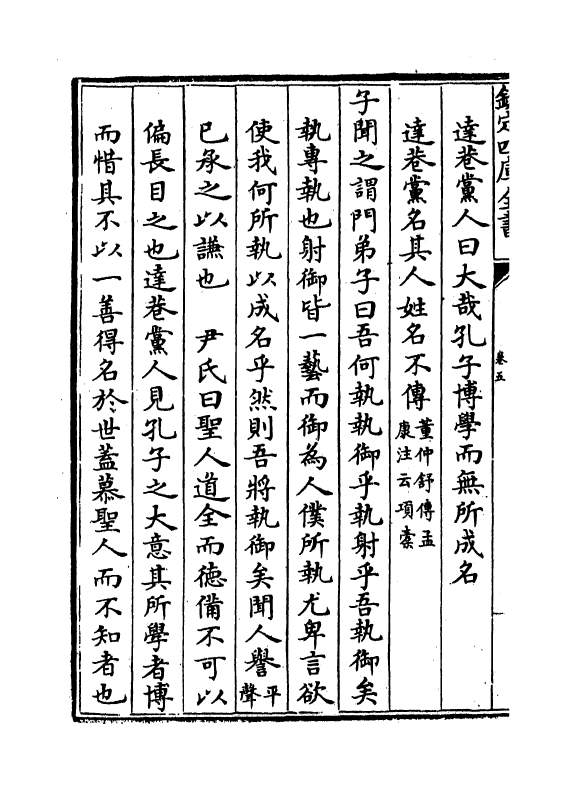 欽定四庫全書
卷五
達巷黨人曰大哉孔子博學而無所成名
達巷黨名其人姓名不傳董仲舒傳孟康注云項橐
子聞之謂門弟子曰吾何執執御乎執射乎吾執御矣
執專執也射御皆一藝而御為人僕所執尤卑言欲
使我何所執以成名乎然則吾將執御矣聞人譽平聲
已承之以謙也　尹氏曰聖人道全而德備不可以
偏長目之也達巷黨人見孔子之大意其所學者博
而惜其不以一善得名於世蓋慕聖人而不知者也